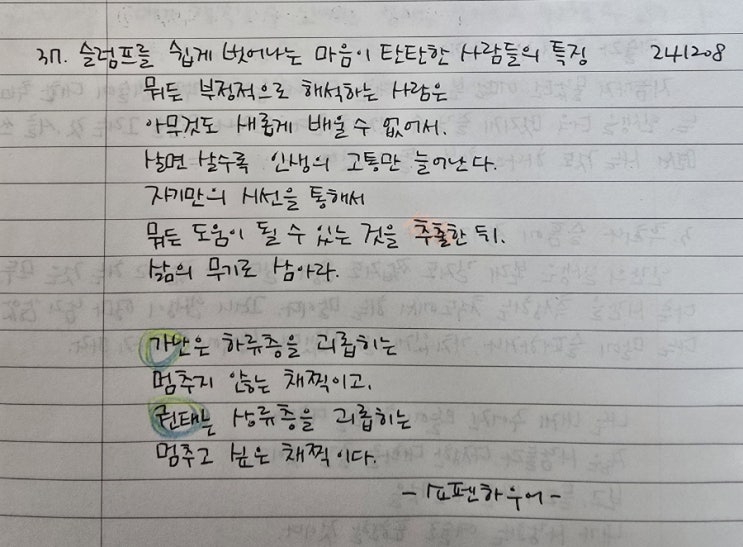 37. 슬럼프를 쉽게 벗어나는 마음이 탄탄한 사람들의 특징 241208
뭐든 부정적으로 해석하는 사람은
아무것도 새롭게 배울 수 없어서.
살면 살수록 인생의 고통만 늘어난다.
자기만의 시선을 통해서
뭐든 도움이 될 수 있는 것을 추출한 뒤.
삶의 무기로 삼아라.
가난은 하류층을 괴롭히는
멈추지 않는 채찍이고,
권태는 상류층을 괴롭히는
멈추고 싶은 채찍이다.
-쇼펜하우어-